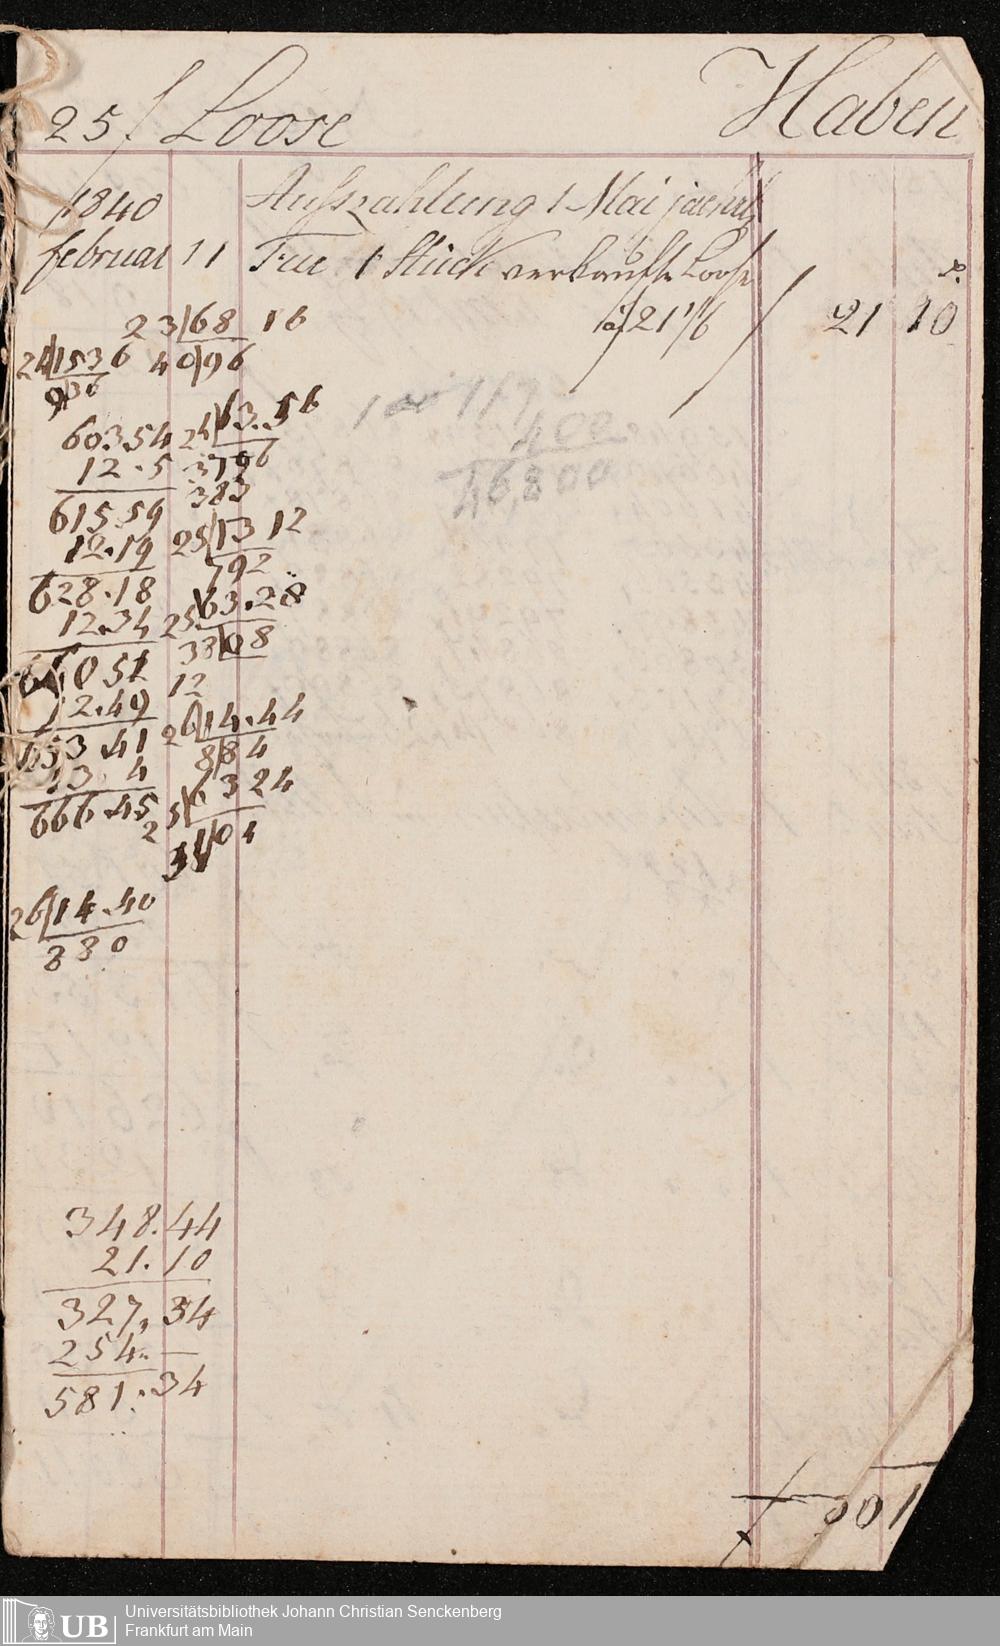 25 f Loose Haben
1840 Auszahlung 1 Mai jaehrl
februar 11 Fur 1 Stück verkaufte Loose
à 21 1/6 21 10
23/68 16
24/1536 40/96
936
603.54 24/63.56
12.5 3796
383
615.59
12.19 25/13 12
792
628.18
12.34 25/63.28
3808
51 12
12.49 26/14.44
653.41 884
13 4 25/63 24
666.45
26/14.40
880
400
46,800
348.44
21.10
327,34
254.—
581.34
UB Universitätsbibliothek Johann Christian Senckenberg
Frankfurt am Main